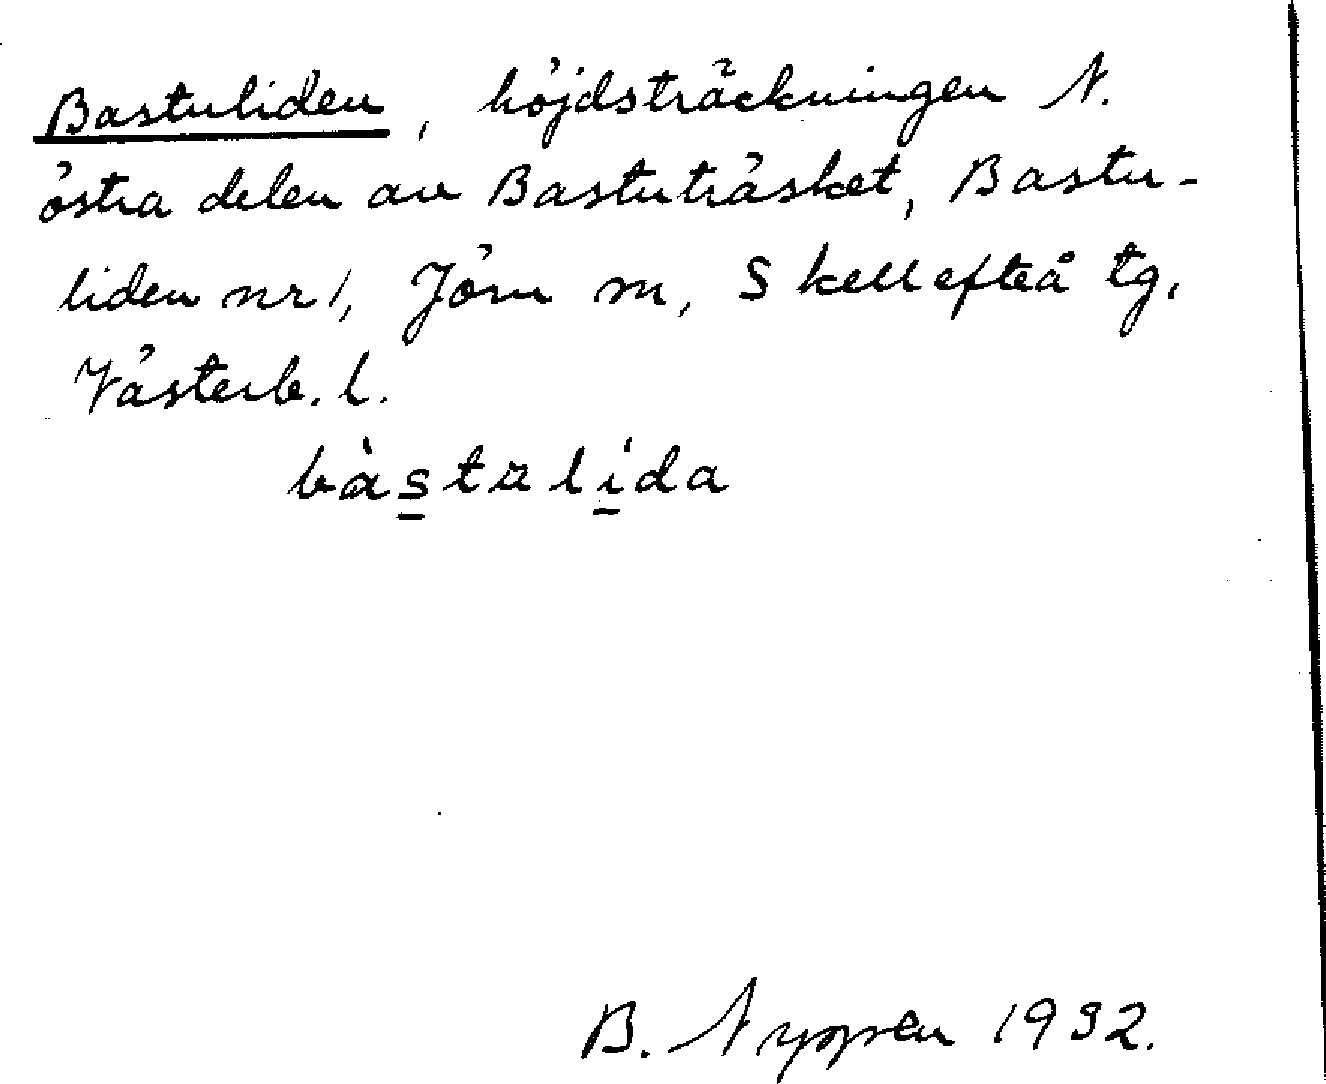 Bastuliden, höjdsträckningen N.
östra delen av Bastuträsket, Bastu-
liden nr 1, Jörn m, Skellefteå tg.
Västerb. l.
bàstalída
B. Nyppen 1932.